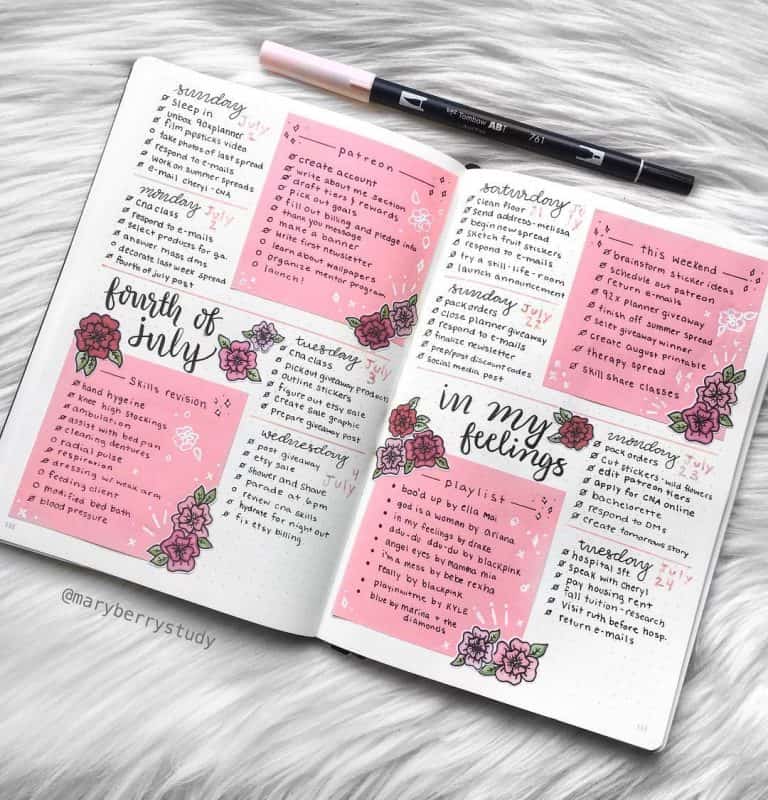 sunday
July
sleep in
unbox 90xplanner
film pipsticks video
take photos of last spread
respond to e-mails
work on summer spreads
e-mail cheryl-CNA
monday
July
2
cna class
respond to e-mails
select products for ga.
answer mass dms
decorate last week spread
fourth of july post
patreon
create account
write about me section
draft tiers & rewards
pick out goals
fill out billing and pledge info
thank you message
make a banner
write first newsletter
learn about wallpapers
organize mentor program
launch!
fourth of
july
Skills revision
hand hygeine
knee high stockings
ambulation
assist with bed pan
cleaning dentures
radial pulse
respiration
dressing w/ weak arm
feeding client
modified bed bath
blood pressure
tuesday
July
3
cna class
pickout giveaway products
outline stickers
figure out etsy sale
create sale graphic
prepare giveaway post
wednesday
4
July
post giveaway
etsy sale
shower and shave
parade at 6pm
review cna skills
hydrate for night out
fix etsy billing
@maryberrystudy
Tombow ABT
761
saturday
clean floor
21
send address-melissa
begin new spread
sketch fruit stickers
respond to e-mails
try a skill-life-room
launch announcement
sunday
July
22
pack orders
close planner giveaway
respond to e-mails
finalize newsletter
prep/post discount codes
social media post
this weekend
brainstorm sticker ideas
schedule out patreon
return e-mails
92x planner giveaway
finish off summer spread
selet giveaway winner
create august printable
therapy spread
skill share classes
in my
feelings
playlist
boo'd up by Ella Mai
god is a woman by ariana
in my feelings by drake
ddu-du ddu-du by blackpink
angel eyes by mamma mia
i'm a mess by bebe rexha
really by blackpink
playinwitme by KYLE
blue by marina + the
diamonds
monday
July
23
pack orders
cut stickers-wild flowers
edit patreon tiers
apply for CNA online
bachelorette
respond to DMs
create tomorrows story
tuesday
July
24
hospital sft
speak with cheryl
pay housing rent
fall tuition-research
visit ruth before hosp.
return e-mails